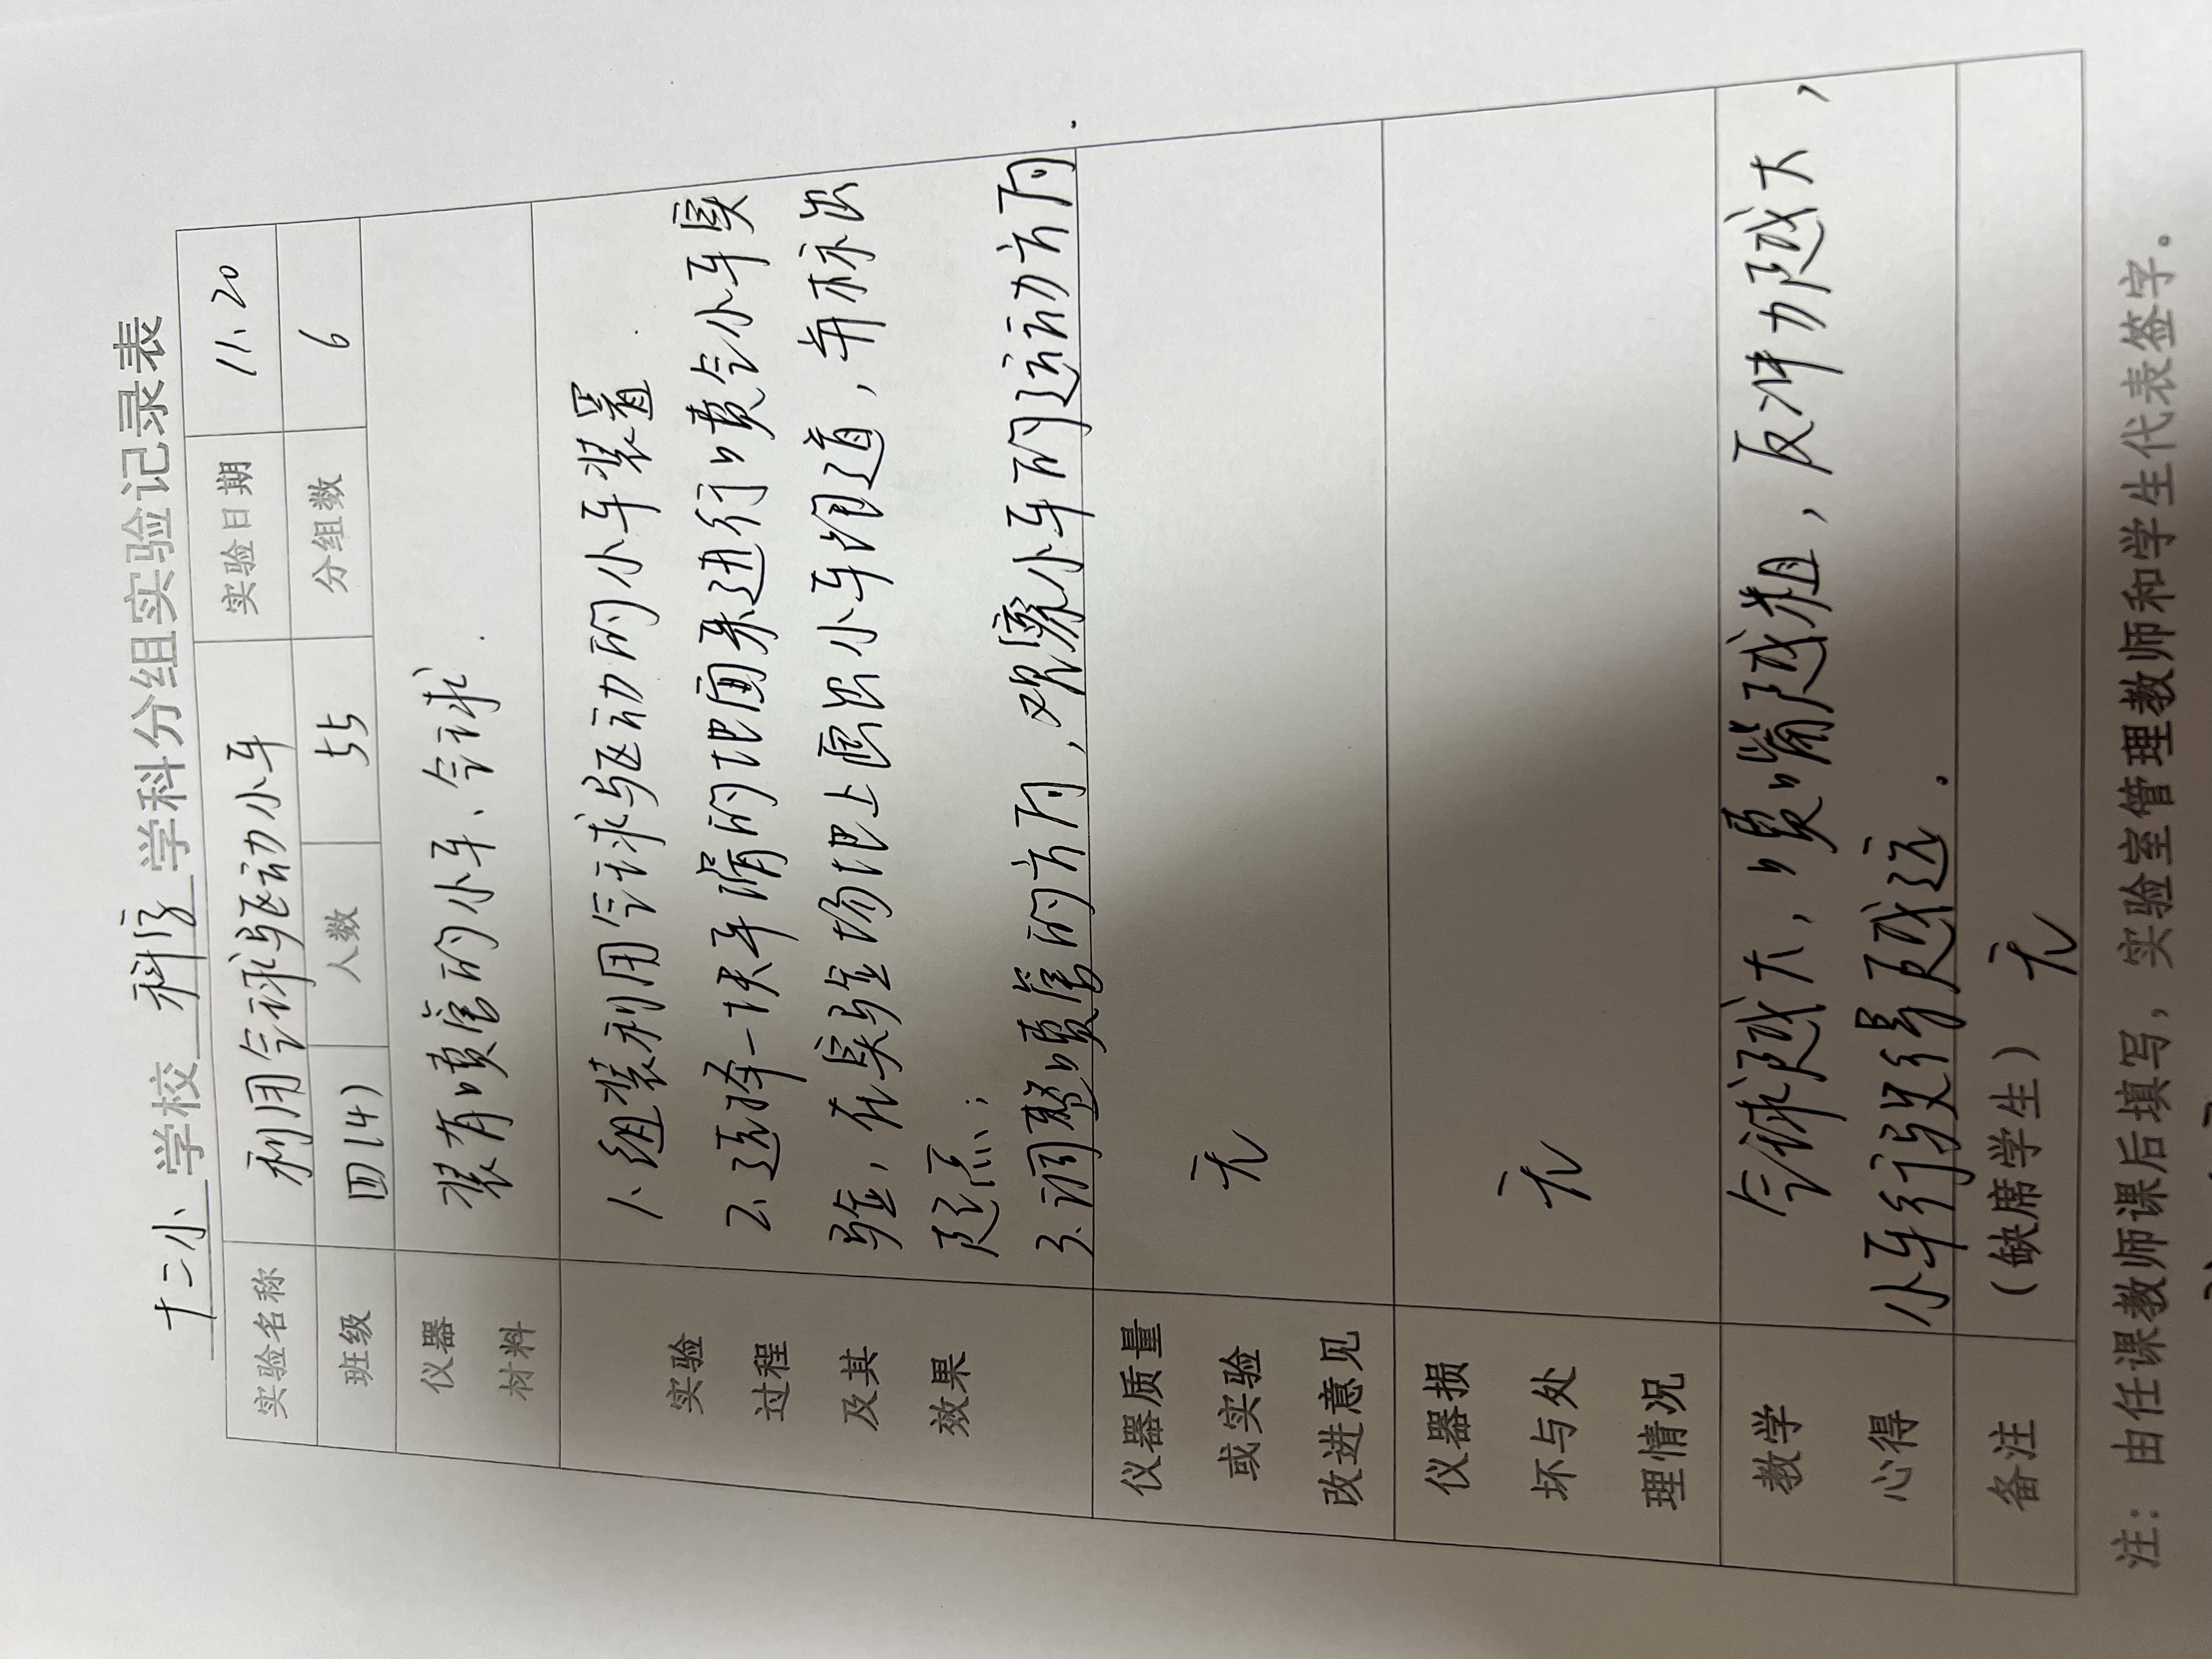 十二小 学校 科学 学科分组实验记录表
实验名称 利用气球驱动小车 实验日期 11、20
班级 四(4) 人数 55 分组数 6
仪器 装有喷管的小车、气球.
材料
1、组装利用气球驱动的小车装置.
实验 2、选择一块平滑的地面来进行喷气小车实
过程 验，在实验场地上画出小车跑道，并标出
及其 起点；
效果 3、调整喷管的方向，观察小车的运动方向.
仪器质量
或实验 无
改进意见
仪器损
坏与处 无
理情况
教学 气球越大，喷嘴越粗，反冲力越大，
心得 小车行驶得越远.
备注 (缺席学生) 无
注：由任课教师课后填写，实验室管理教师和学生代表签字。